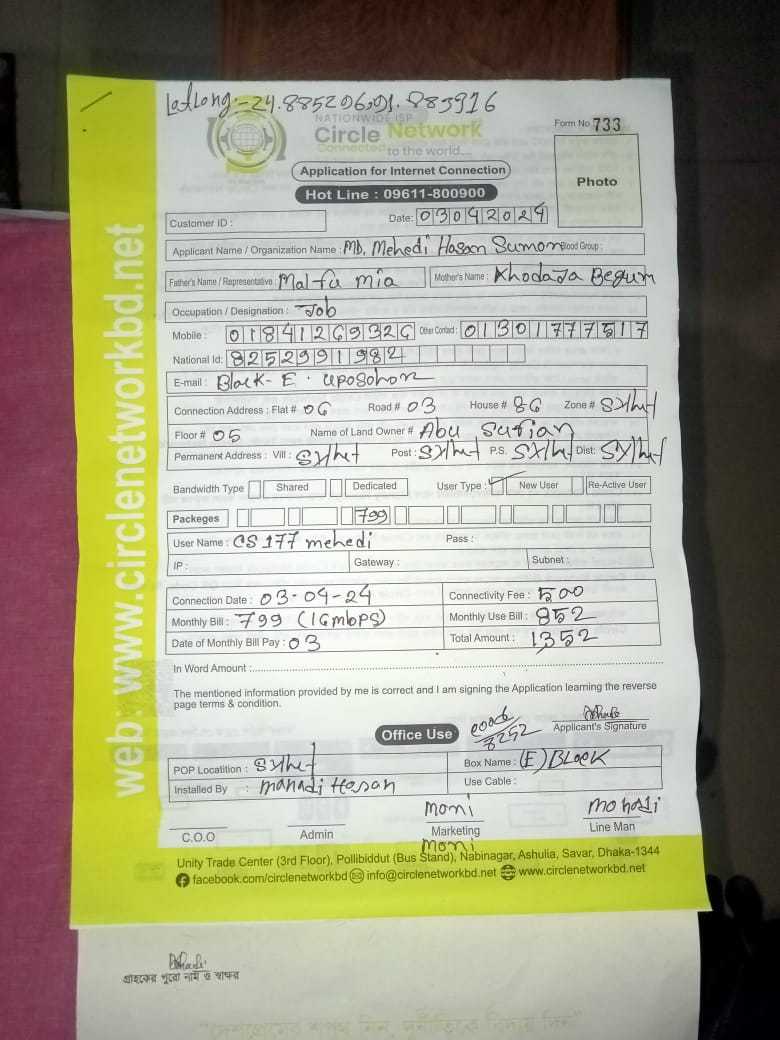 LatLong:-24.885206,91.883916
NATIONWIDE ISP
Circle Network
Connected to the world....
Form No 733
Application for Internet Connection
Hot Line : 09611-800900
Photo
Customer ID :
Date: 03042024
Applicant Name / Organization Name : MD. Mehedi Hasan Sumon Blood Group :
Father's Name / Representative : Malfu mia Mother's Name : Khodaja Begum
Occupation / Designation : Job
Mobile : 01841269326 Other Contact : 01301777517
National Id: 8252991982
E-mail : Block-E. uposohon
Connection Address : Flat # 06 Road # 03 House # 86 Zone # Sylhet
Floor # 05 Name of Land Owner # Abu Sufian
Permanent Address : Vill : Sylhet Post : Sylhet P.S. Sylhet Dist: Sylhet
Bandwidth Type Shared Dedicated User Type : New User Re-Active User
Packeges 799
User Name : CS177 mehedi Pass :
IP : Gateway : Subnet :
Connection Date : 03-04-24 Connectivity Fee : 500
Monthly Bill : 799 (16mbps) Monthly Use Bill : 852
Date of Monthly Bill Pay : 03 Total Amount : 1352
In Word Amount :
The mentioned information provided by me is correct and I am signing the Application learning the reverse
page terms & condition.
Office Use
Applicant's Signature
POP Locatition : Sylhet Box Name : (E) Block
Installed By : mahadi Hasan Use Cable :
moni
C.O.O Admin Marketing Line Man
moni
Unity Trade Center (3rd Floor), Pollibiddut (Bus Stand), Nabinagar, Ashulia, Savar, Dhaka-1344
facebook.com/circlenetworkbd info@circlenetworkbd.net www.circlenetworkbd.net
web: www.circlenetworkbd.net
গ্রাহকের পুরো নাম ও স্বাক্ষর
"দেশপ্রেমের শপথ নিন, দুর্নীতিকে বিদায় দিন"